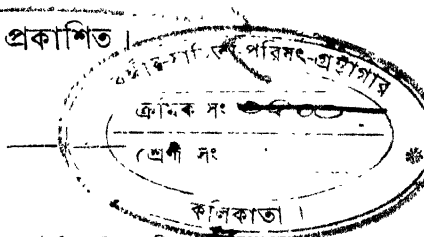 প্রকাশিত।
সাহিত্য-পরিষৎ-গ্রন্থাগার
ক্রমিক সং
শ্রেণী সং
কলিকাতা।